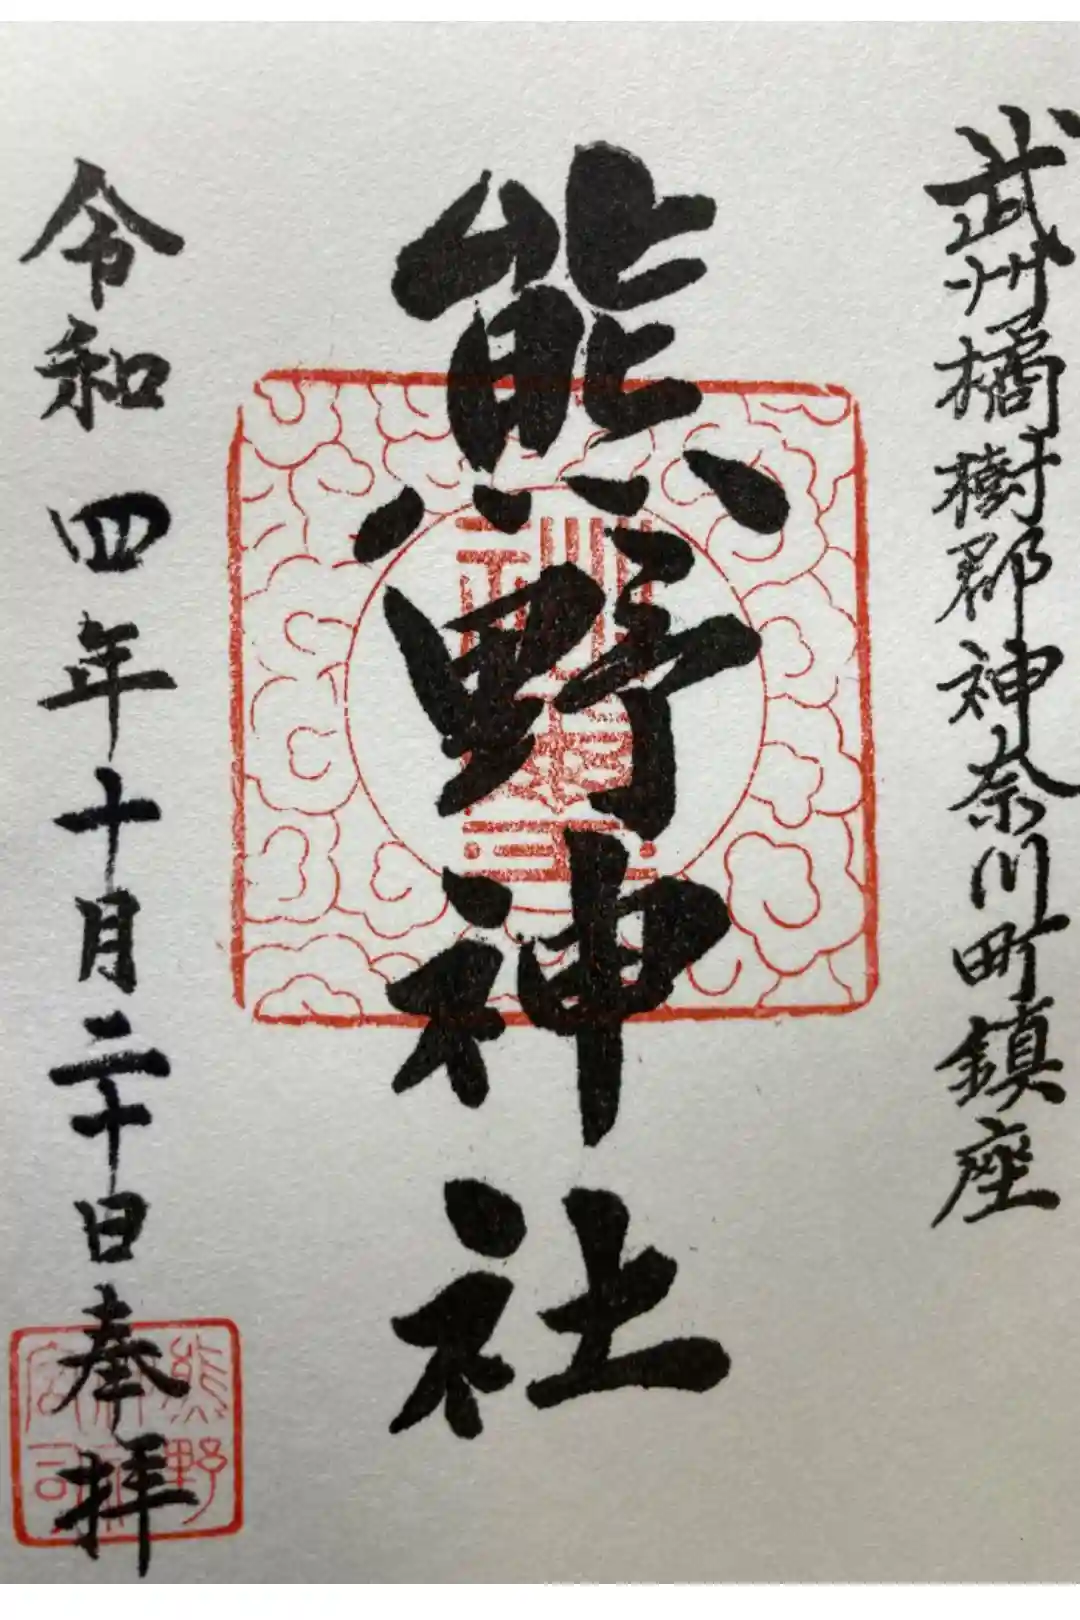 武州橘樹郡神奈川町鎮座
熊野神社
令和四年十月二十日奉拝
熊野